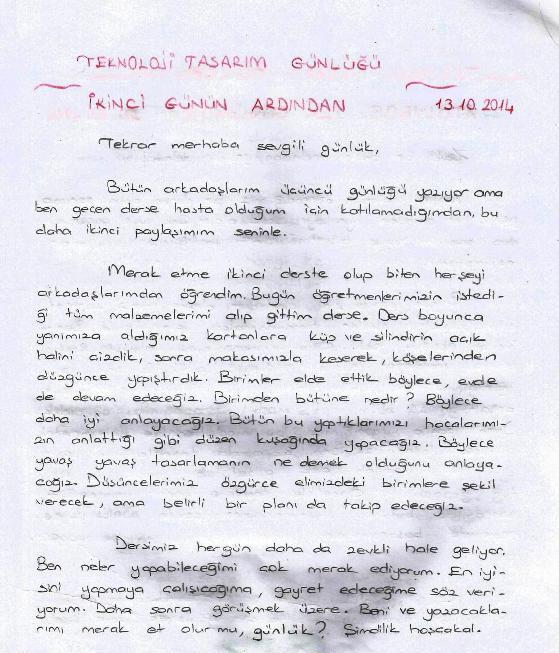 TEKNOLOJİ TASARIM GÜNLÜĞÜ
İKİNCİ GÜNÜN ARDINDAN 13.10.2014
Tekrar merhaba sevgili günlük,
Bütün arkadaşlarım üçüncü günlüğü yazıyor ama
ben geçen derse hasta olduğum için katılamadığımdan, bu
daha ikinci paylaşımım seninle.
Merak etme ikinci derste olup biten herşeyi
arkadaşlarımdan öğrendim. Bugün öğretmenlerimizin istedi-
ği tüm malzemelerimi alıp gittim derse. Ders boyunca
yanımıza aldığımız kartonlara küp ve silindirin açık
halini çizdik, sonra makasımızla keserek, köşelerinden
düzgünce yapıştırdık. Birimler elde ettik böylece, evde
de devam edeceğiz. Birimden bütüne nedir? Böylece
daha iyi anlayacağız. Bütün bu yaptıklarımızı hocalarımı-
zın anlattığı gibi düzen kuşağında yapacağız. Böylece
yavaş yavaş tasarlamanın ne demek olduğunu anlaya-
cağız. Düşüncelerimiz özgürce elimizdeki birimlere şekil
verecek, ama belirli bir planı da takip edeceğiz.
Dersimiz hergün daha da zevkli hale geliyor.
Ben neler yapabileceğimi çok merak ediyorum. En iyi-
sini yapmaya çalışıcağıma, gayret edeceğime söz veri-
yorum. Daha sonra görüşmek üzere. Beni ve yazacakla-
rımı merak et olur mu, günlük? Şimdilik hoşçakal.